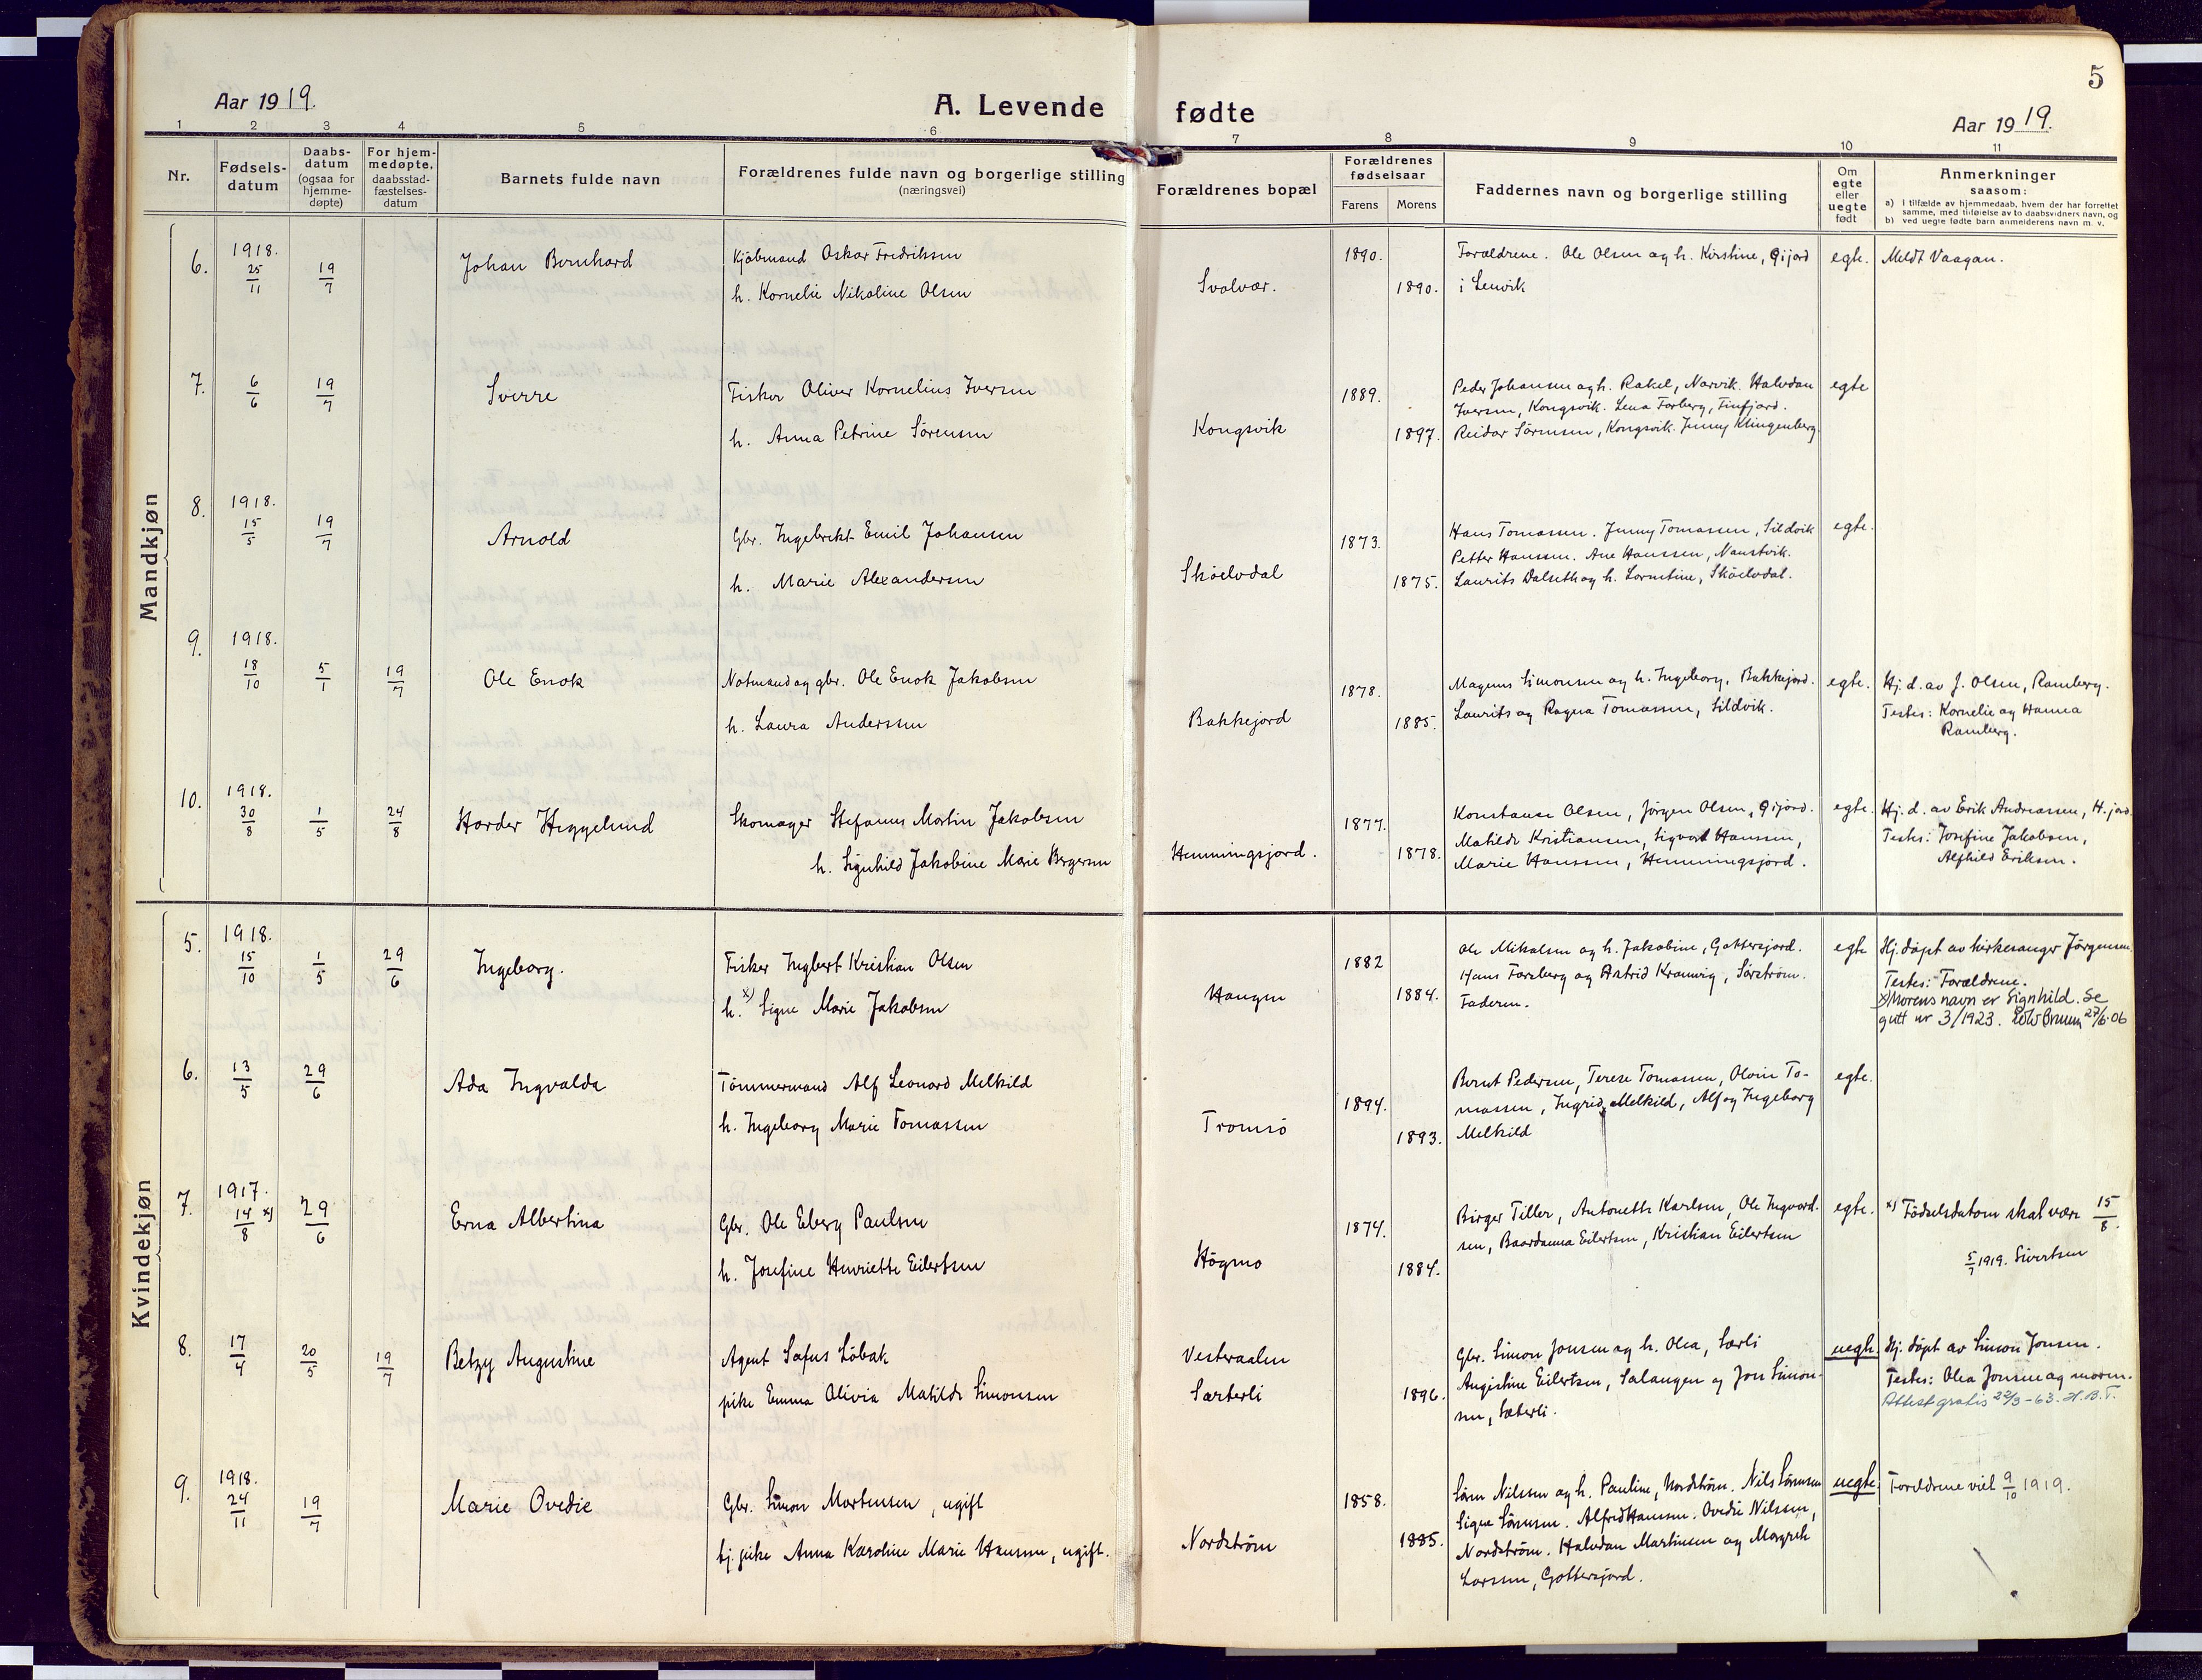 5
Aar 1919.
A. Levende fødte
Aar 1919.
1 2 3 4 5 6 7 8 9 10 11
Nr.
Fødsels-
datum
Daabs-
datum
(ogsaa for
hjemme-
døpte)
For hjem-
medøpte,
daabsstad-
fæstelses-
datum
Barnets fulde navn
Forældrenes fulde navn og borgerlige stilling
(næringsvei)
Forældrenes bopæl
Forældrenes
fødselsaar
Farens Morens
Faddernes navn og borgerlige stilling
Om
egte
eller
uegte
født
Anmerkninger
saasom:
a) i tilfælde av hjemmedaab, hvem der har forrettet
samme, med tilføielse av to daabsvidners navn, og
b) ved uegte fødte barn anmelderens navn m. v.
Mandkjøn
6. 1918. 25/11 19/7 Johan Bernhard
Kjøbmand Oskar Fredriksen
h. Kornelie Nikoline Olsen
Svolvær.
1890.
1890.
Forældrene. Ole Olsen og h. Kirstine, Gijord
i Lenvik
egte. Meldt Vaagan.
7. 6/6 19/7 Sverre
Fisker Oliver Kornelius Iversen
h. Anna Petrine Sørensen
Kongsvik
1889.
1897.
Peder Johansen og h. Rakel, Narvik. Halvdan
Iversen, Kongsvik. Lena Forberg, Finfjord.
Reidar Sørensen, Kongsvik. Jenny Klingenberg.
egte
8. 1918. 15/5 19/7 Arnold
Gbr. Ingebrikt Emil Johansen
h. Marie Alexandersen
Sköelvdal
1873.
1875.
Hans Tomassen. Jenny Tomassen, Sildvik
Petter Hanssen. Ane Hanssen, Naustvik.
Laurits Dalseth og h. Lorentine, Sköelvdal.
egte.
9. 1918. 18/10 5/1 19/7 Ole Enok
Notmand og gbr. Ole Enok Jakobsen
h. Laura Anderssen
Bakkejord
1878.
1885.
Magnus Simonsen og h. Ingeborg, Bakkejord.
Laurits og Ragna Tomassen, Sildvik.
egte. Hj. d. av J. Olsen, Ramberg.
Testes: Kornelie og Hanna
Ramberg.
10. 1918. 30/8 1/5 24/8 Harder Heggelund
Skomager Stefanus Martin Jakobsen
h. Signhild Jakobine Marie Bergersen
Hemmingsjord.
1877.
1878.
Konstanse Olsen, Jörgen Olsen, Gijord.
Matilde Kristiansen, Sigvart Hanssen,
Marie Hanssen, Hemmingsjord.
egte. Hj. d. av Erik Andreassen, H.jord.
Testes: Josefine Jakobsen,
Alfhild Eriksen.
Kvindekjøn
5. 1918. 15/10 1/5 29/6 Ingeborg.
Fisker Ingbert Kristian Olsen
h. x) Signe Marie Jakobsen
Haugen
1882
1884.
Ole Mikalsen og h. Jakobine, Gottersjord.
Hans Forsberg og Astrid Kramvig, Sørstrøm.
Faderen.
egte Hj. døpt av kirkesanger Jörgensen.
Testes: Forældrene.
x) Morens navn er Signhild. Se
gutt nr 3/1923. 27/6-06
6. 13/5 29/6 Ada Ingvalda
Tömmermand Alf Leonard Melkild
h. Ingeborg Marie Tomassen
Tromsö
1894.
1893.
Bernt Pedersen, Terese Tomassen, Olvin To-
massen, Ingrid Melkild, Alf og Ingeborg
Melkild
egte.
7. 1917. 14/8 x) 29/6 Erna Albertina
Gbr. Ole Eberg Paulsen
h. Josefine Henriette Eilertsen
Högmo
1874.
1884.
Birger Tiller, Antonette Karlsen, Ole Ingvard-
sen, Baardanna Eilertsen, Kristian Eilertsen
egte. x) Födselsdatum skal være 15/8.
5/7 1919. Sivertsen
8. 17/4 20/5 19/7 Betzy Augustine
Agent Sofus Löbak
pike Emma Olivia Matilde Simonsen
Vesteraalen
Sæterli
1896.
Gbr. Simon Jonsen og h. Olea, Særli
Augustine Eilertsen, Salangen og Jon Simon-
sen, Sæterli.
uegte. Hj. döpt av Simon Jonsen.
Testes: Olea Jonsen og moren.
Attest gratis 22/3-63. H.B.T.
9. 1918. 24/11 19/7 Marie Ovedie
Gbr. Simon Mortensen, ugift
tj. pike Anna Karoline Marie Hansen, ugift.
Nordstrøm
1858.
1885.
Sören Nilssen og h. Pauline, Nordstrøm. Nils Sörensen
Signe Sörensen. Alfred Hanssen. Ovedie Nilssen,
Nordstrøm. Halvdan Martinsen og Margrete
Larssen, Gottersjord.
uegte. Foreldrene viet 9/10 1919.